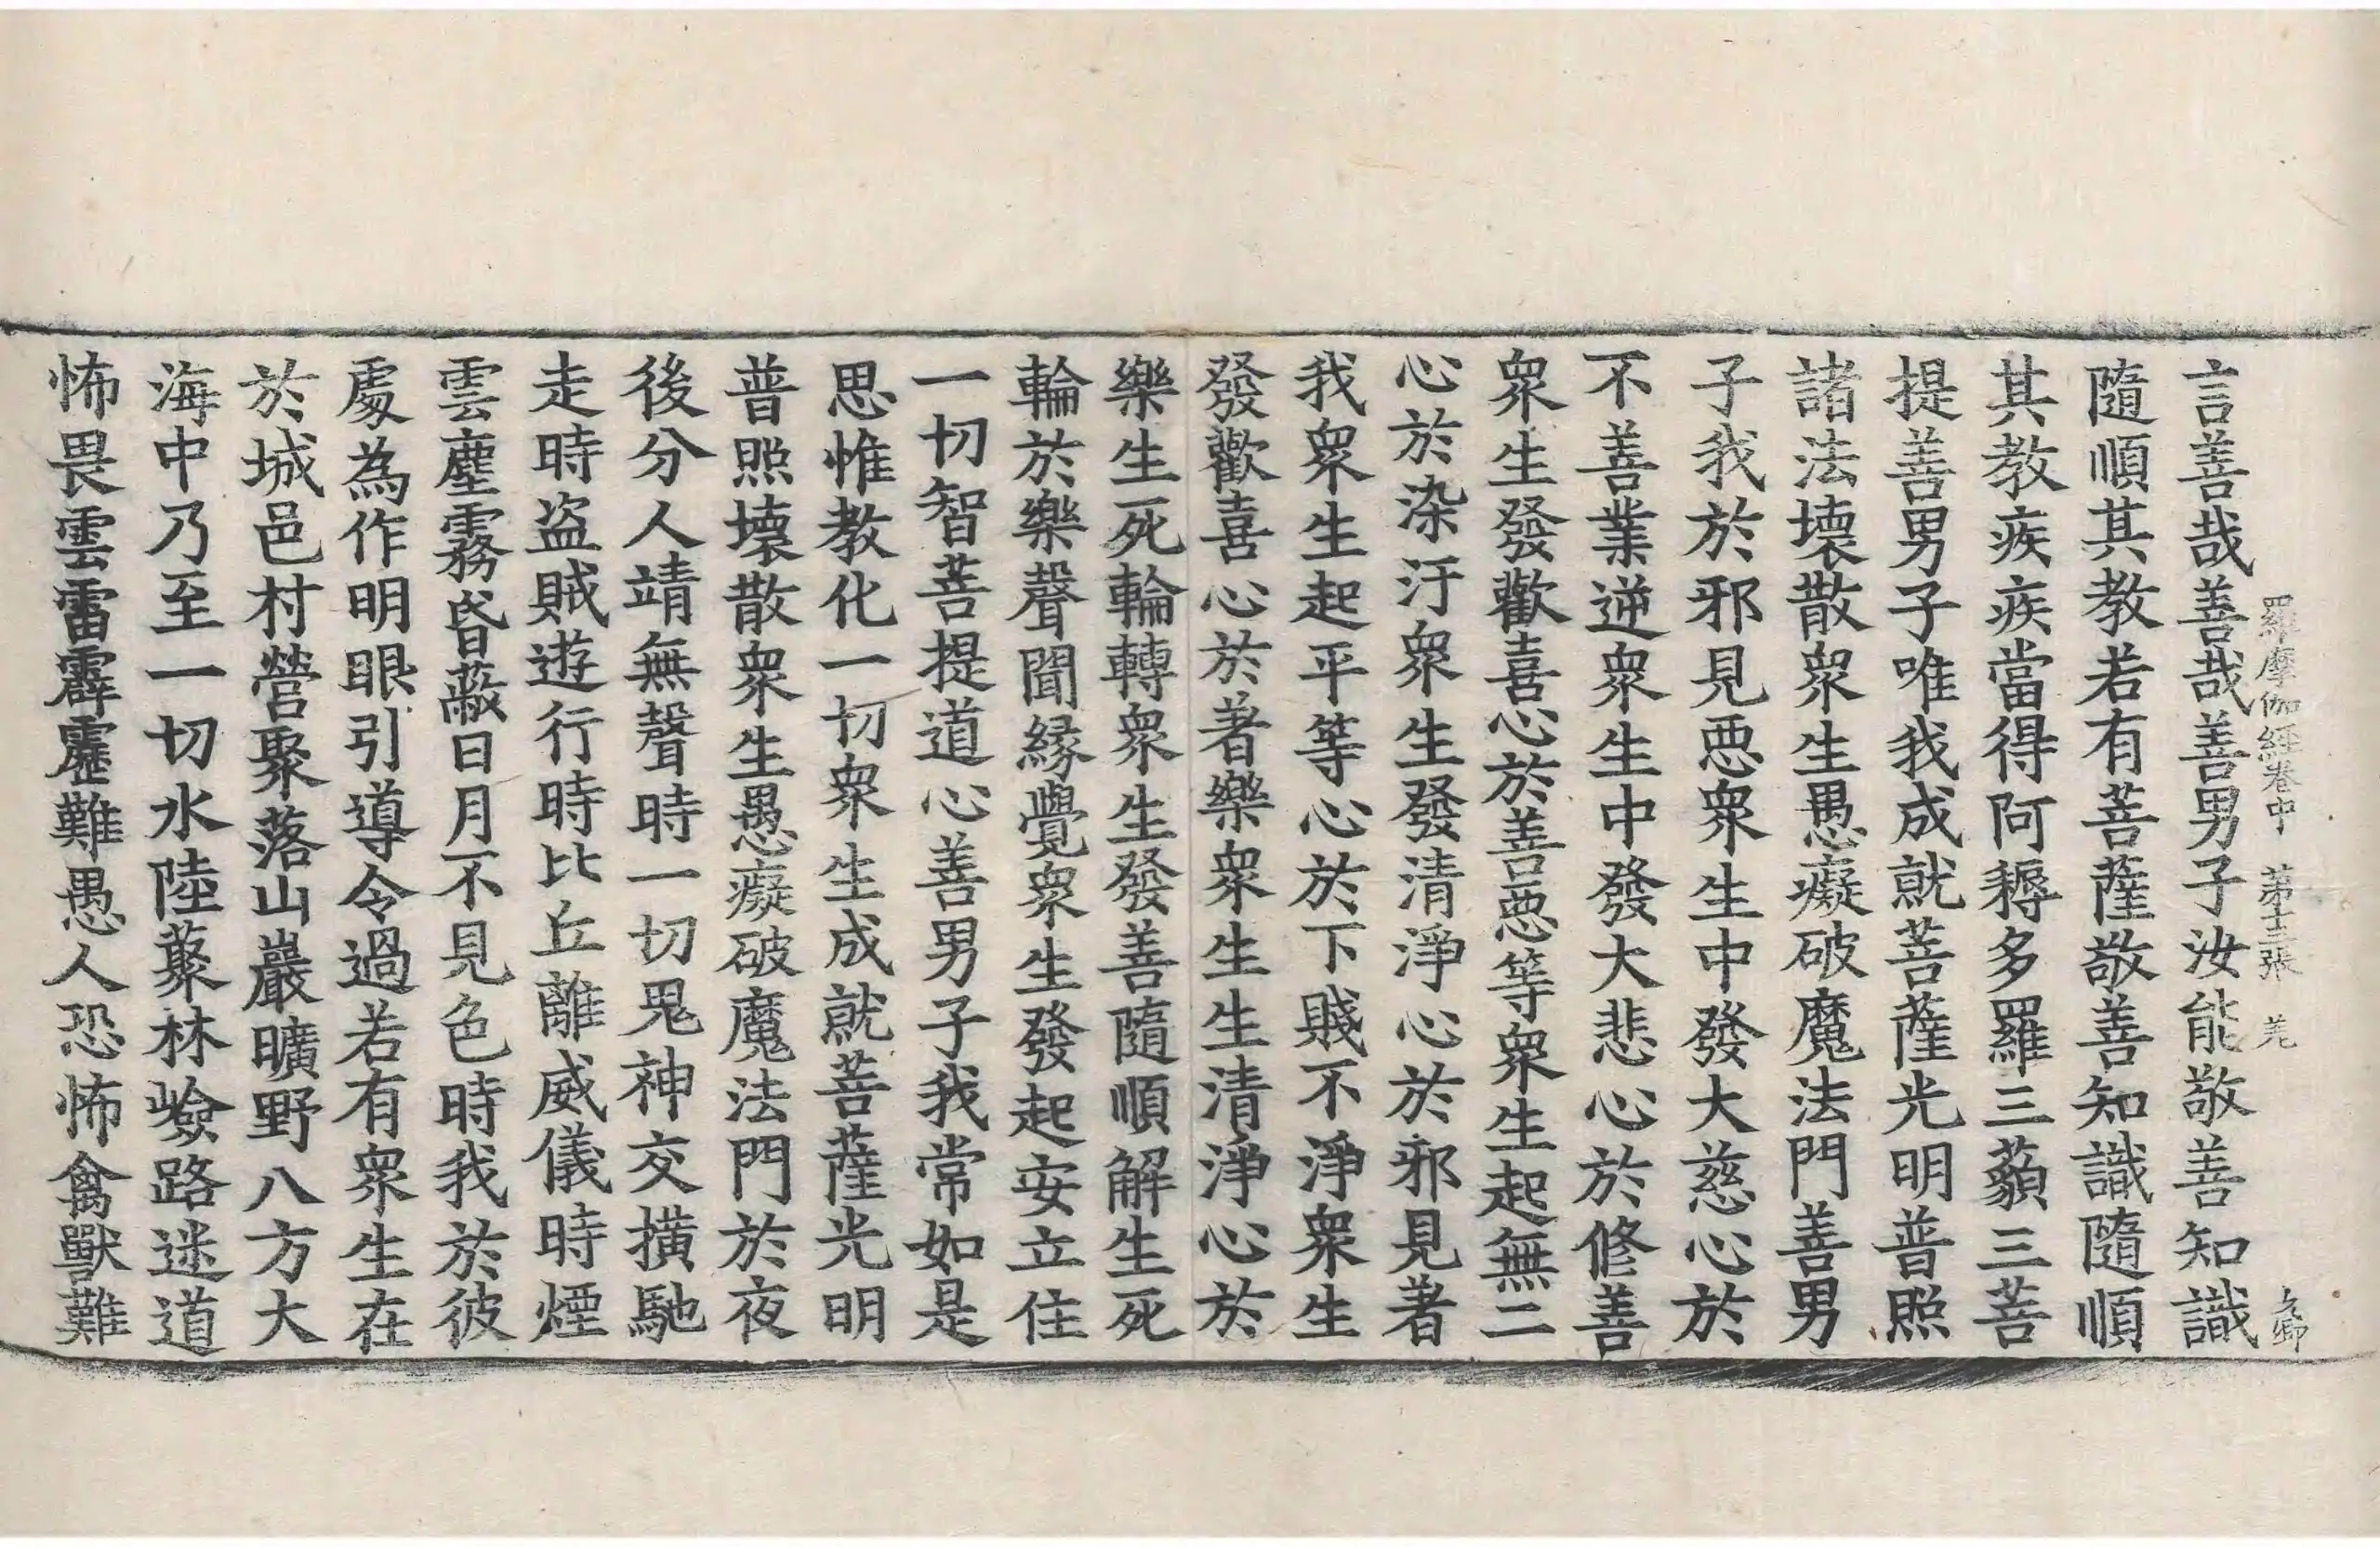 羅摩伽經卷中 第十三張 羌
言善哉善哉善男子汝能敬善知識
隨順其教若有菩薩敬善知識隨順
其教疾疾當得阿耨多羅三藐三菩
提善男子唯我成就菩薩光明普照
諸法壞散衆生愚癡破魔法門善男
子我於邪見惡衆生中發大慈心於
不善業逆衆生中發大悲心於修善
衆生發歡喜心於善惡等衆生起無二
心於染汙衆生發清淨心於邪見著
我衆生起平等心於下賤不淨衆生
發歡喜心於著樂衆生生清淨心於
樂生死輪轉衆生發善隨順解生死
輪於樂聲聞緣覺衆生發起安立住
一切智菩提道心善男子我常如是
思惟教化一切衆生成就菩薩光明
普照壞散衆生愚癡破魔法門於夜
後分人靖無聲時一切鬼神交橫馳
走時盜賊遊行時比丘離威儀時煙
雲塵霧昏蔽日月不見色時我於彼
處為作明眼引導令過若有衆生在
於城邑村營聚落山巖曠野八方大
海中乃至一切水陸藂林嶮路迷道
怖畏雲雷霹靂難愚人恐怖禽獸難